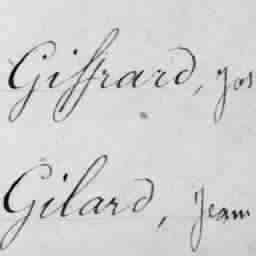 Giffrard, Jos
Gilard, Jean